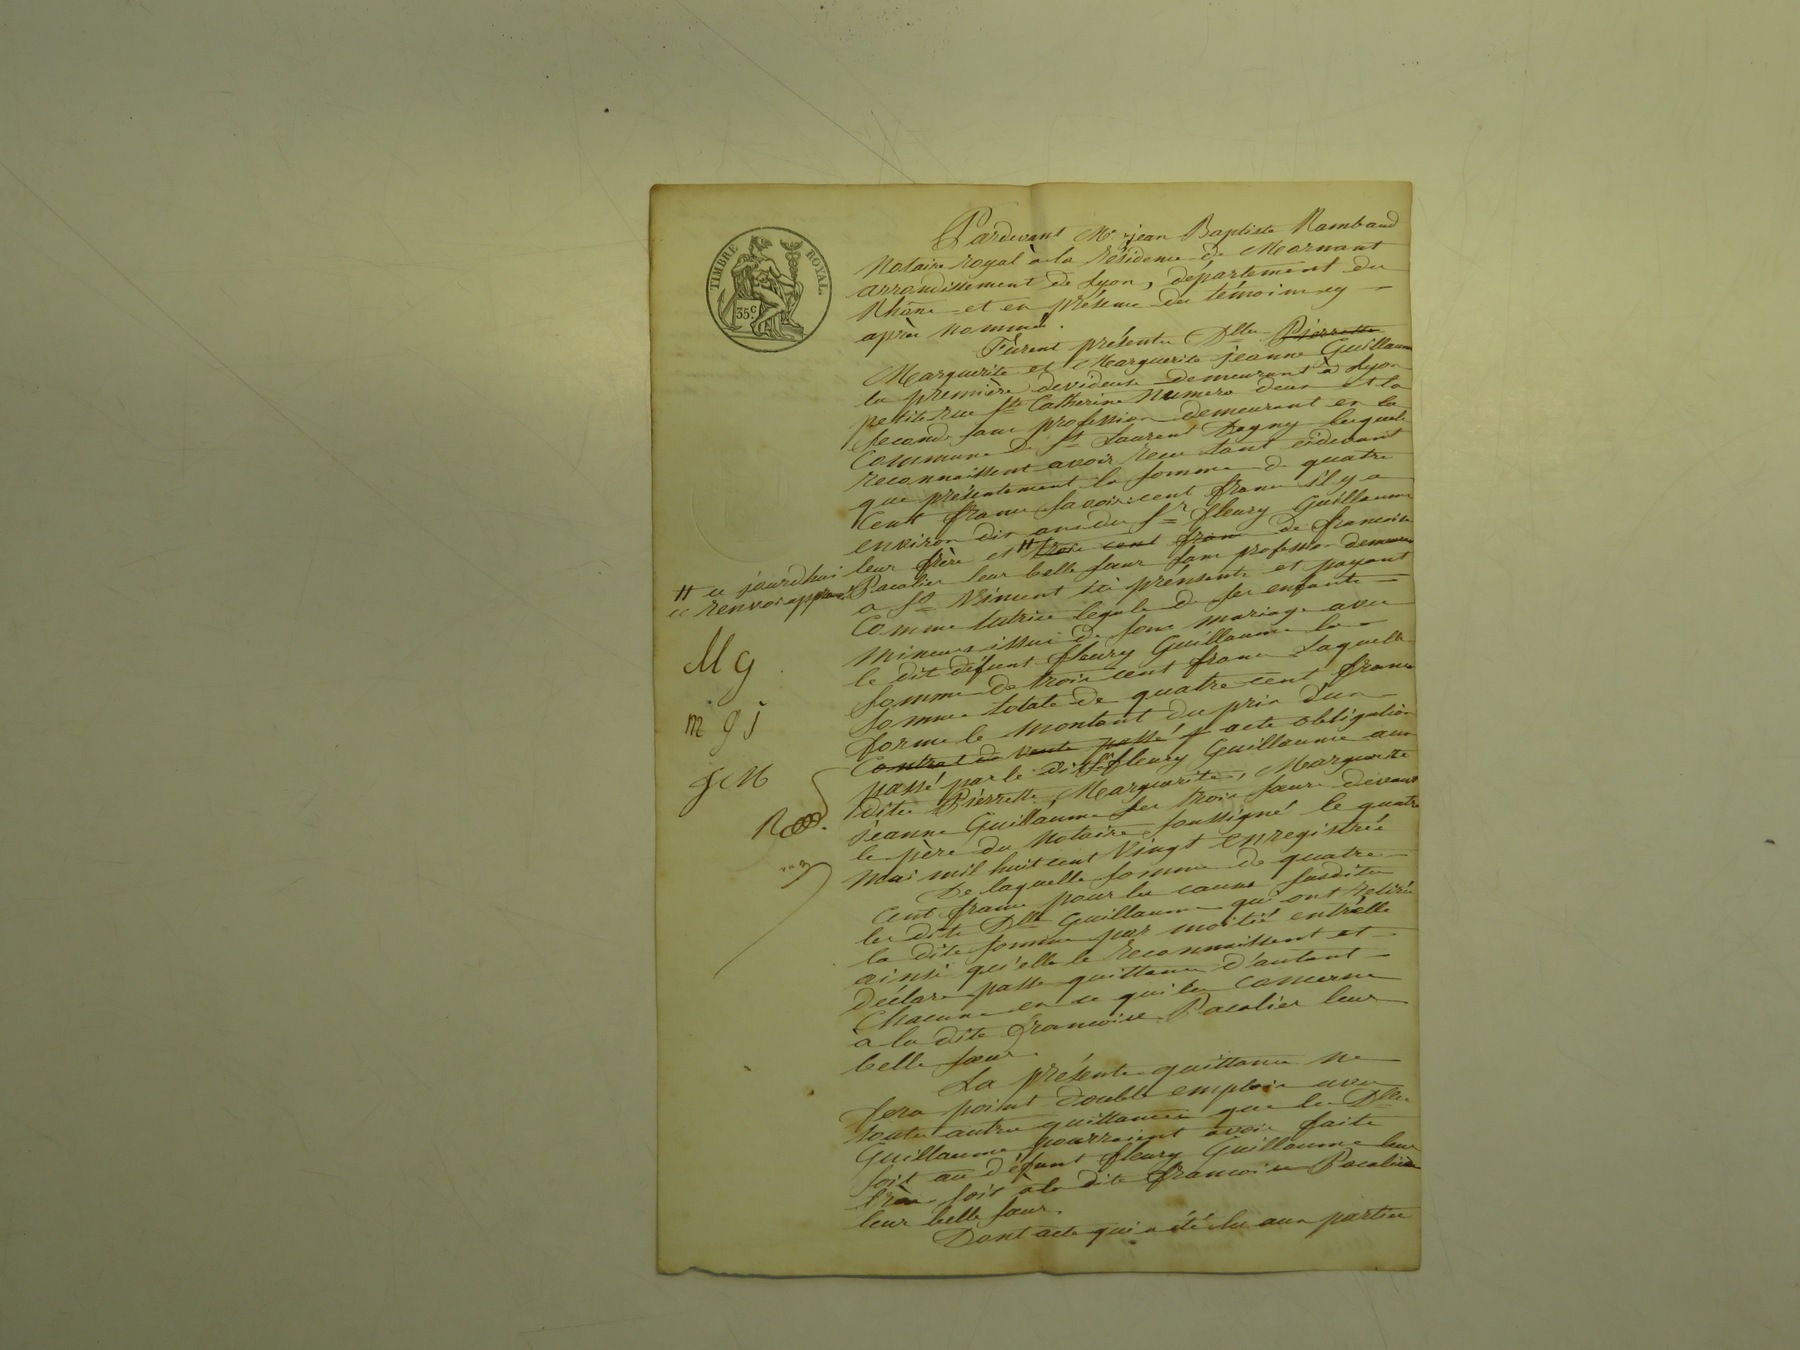 TIMBRE ROYAL.
35 c.
Pardevant Me jean Baptiste Rambaud
Notaire royal à la résidence de Mornant
arrondissement de Lyon, département du
Rhône et en présence des témoins cy
après nommés.
Furent présentes Dlles Pierrette
Marguerite et Marguerite jeanne Guillaume
la première devideuse demeurant à Lyon
petite rue Ste Catherine Numero deux et la
seconde sans profession demeurant en la
Commune de St Laurent Dagny lesquels
reconnaissent avoir reçu tant cidevant
que présentement la somme de quatre
Cent francs savoir: cent francs il y a
environ dix ans du Sr fleury Guillaume
leur frère et # trois cent francs de francoise
# ce jourdhui
ce renvoi approuvé
Pacalier leur belle sœur sans profession demeurant
a St Vincent ici présente et payant
Comme tutrice legale de ses enfants
Mineurs issus de son mariage avec
le dit défunt fleury Guillaume la
somme de trois cent francs Laquelle
somme totale de quatre cent francs
forme le montant du prix d'un
Contrat de vente passé acte obligation
passé par le dit Sr fleury Guillaume aux
dites Pierrette, Marguerite, Marguerite
jeanne Guillaume ses trois sœurs devant
le père du Notaire soussigné le quatre
Mai mil huit cent Vingt enregistrée
M g
m g j
g M
R
m g
De laquelle somme de quatre
Cent francs pour les causes susdites
les dites Dlles Guillaume qui ont retirée
la dite somme par moitié entrelle
ainsi qu'elle le reconnaissent et
déclare passe quittance d'autant
Chacune en ce qui les concerne
à la dite francoise Pacalier leur
belle sœur.
La présente quittance ne
fera point double emploix avec
toutes autres quittances que les Dlles
Guillaume pourraient avoir faite
soit au défunt fleury Guillaume leur
frère soit à la dite francoise Pacalier
leur belle sœur.
Dont acte qui a été lu aux parties